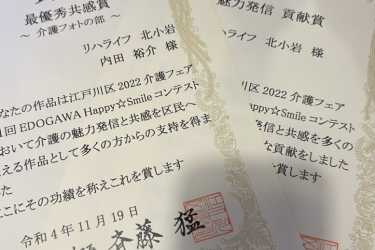 最優秀共感賞
～ 介護フォトの部 ～
リハライフ 北小岩
内田 裕介 様
なたの作品は江戸川区 2022 介護フェア
1回 EDOGAWA Happy☆Smile コンテスト
おいて介護の魅力発信と共感を区民へ
える作品として多くの方からの支持を得ま
た
こにその功績を称えこれを賞します
令和 4 年 11 月 19 日
斉藤 猛
魅力発信 貢献賞
ハライフ 北小岩
川区 2022 介護フェア
appy☆Smile コンテスト
発信と共感を多くの
な貢献をしました
賞します